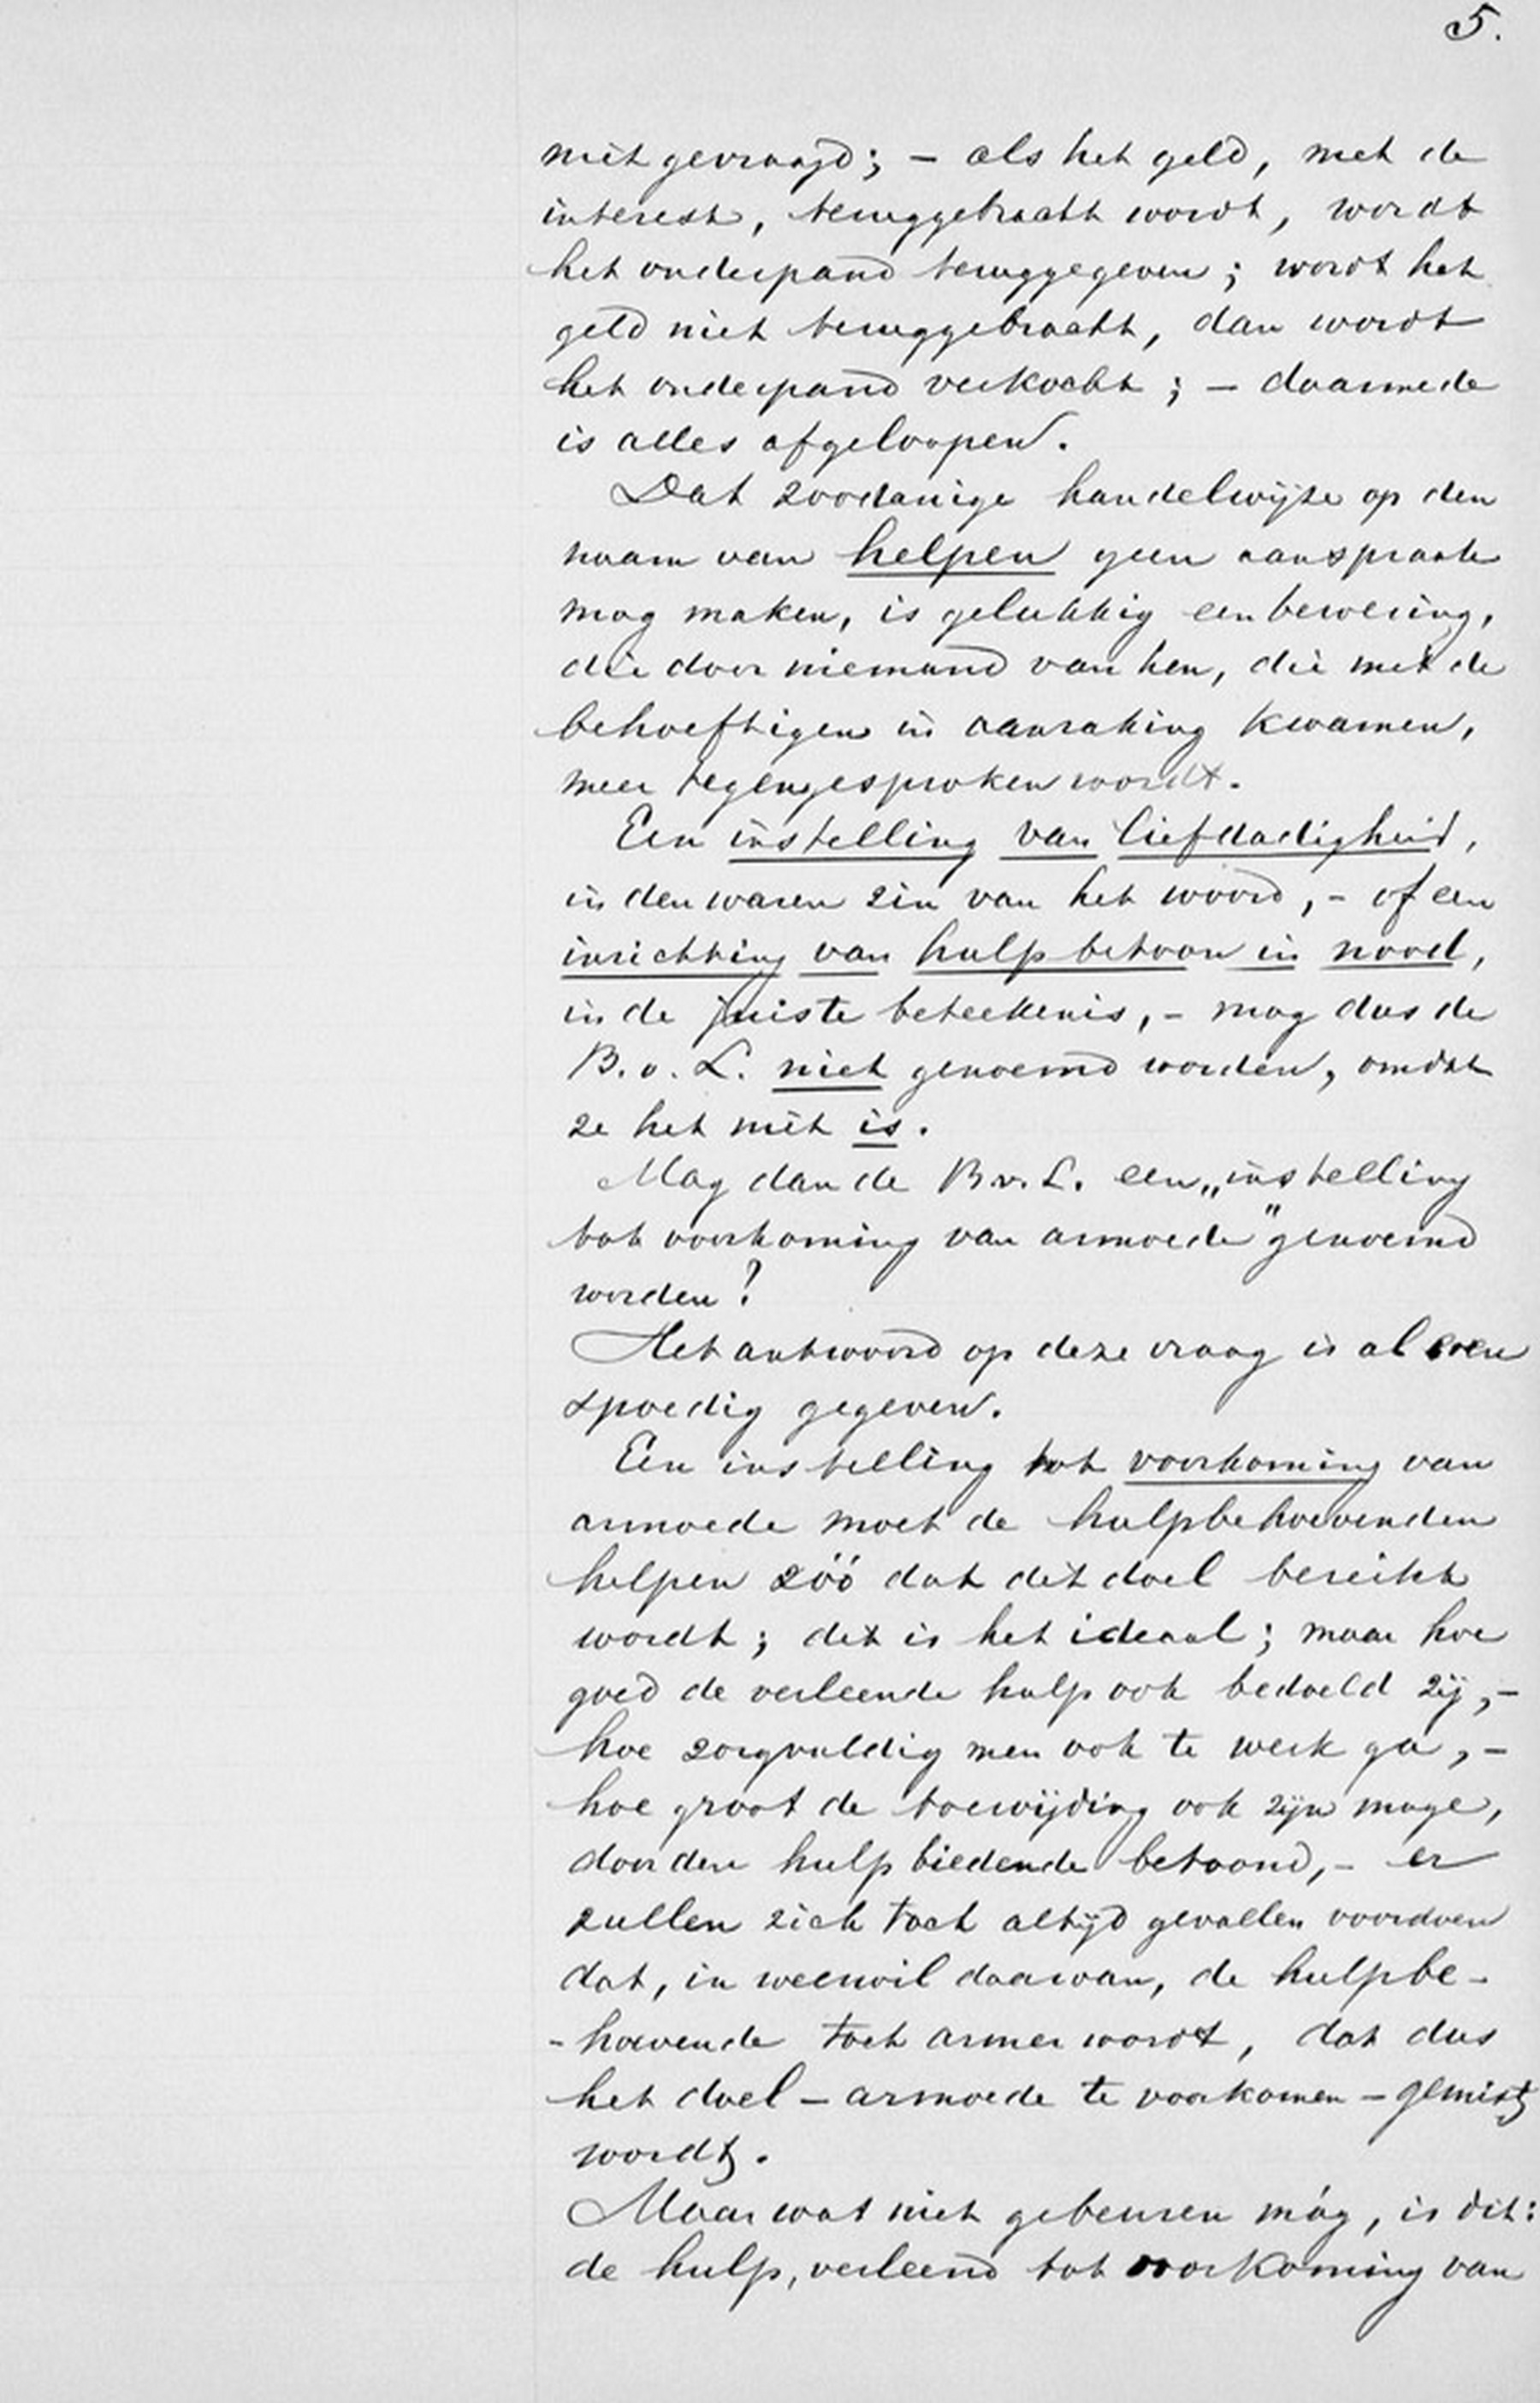 5.
niet gevraagd; – als het geld, met de
interest, teruggebracht wordt, wordt
het onderpand teruggegeven; wordt het
geld niet teruggebracht, dan wordt
het onderpand verkocht; – daarmede
is alles afgeloopen.
Dat zoodanige handelwijze op den
naam van helpen geen aanspraak
mag maken, is gelukkig een bewering,
die door niemand van hen, die met de
behoeftigen in aanraking kwamen,
meer tegengesproken wordt.
Een instelling van liefdadigheid,
in den waren zin van het woord, – of een
inrichting van hulpbetoon in nood,
in de juiste beteekenis, – mag dus de
B. v. L. niet genoemd worden, omdat
ze het niet is.
Mag dan de B. v. L. een „instelling
tot voorkoming van armoede" genoemd
worden?
Het antwoord op deze vraag is al even
spoedig gegeven.
Een instelling tot voorkoming van
armoede moet de hulpbehoevenden
helpen zóó dat dit doel bereikt
wordt; dit is het ideaal; maar hoe
goed de verleende hulp ook bedoeld zij, –
hoe zorgvuldig men ook te werk ga, –
hoe groot de toewijding ook zijn moge,
door den hulpbiedende betoond, – er
zullen zich toch altijd gevallen voordoen
dat, in weerwil daarvan, de hulpbe-
-hoevende toch armer wordt, dat dus
het doel – armoede te voorkomen – gemist
wordt.
Maar wat niet gebeuren mág, is dit:
de hulp, verleend tot voorkoming van